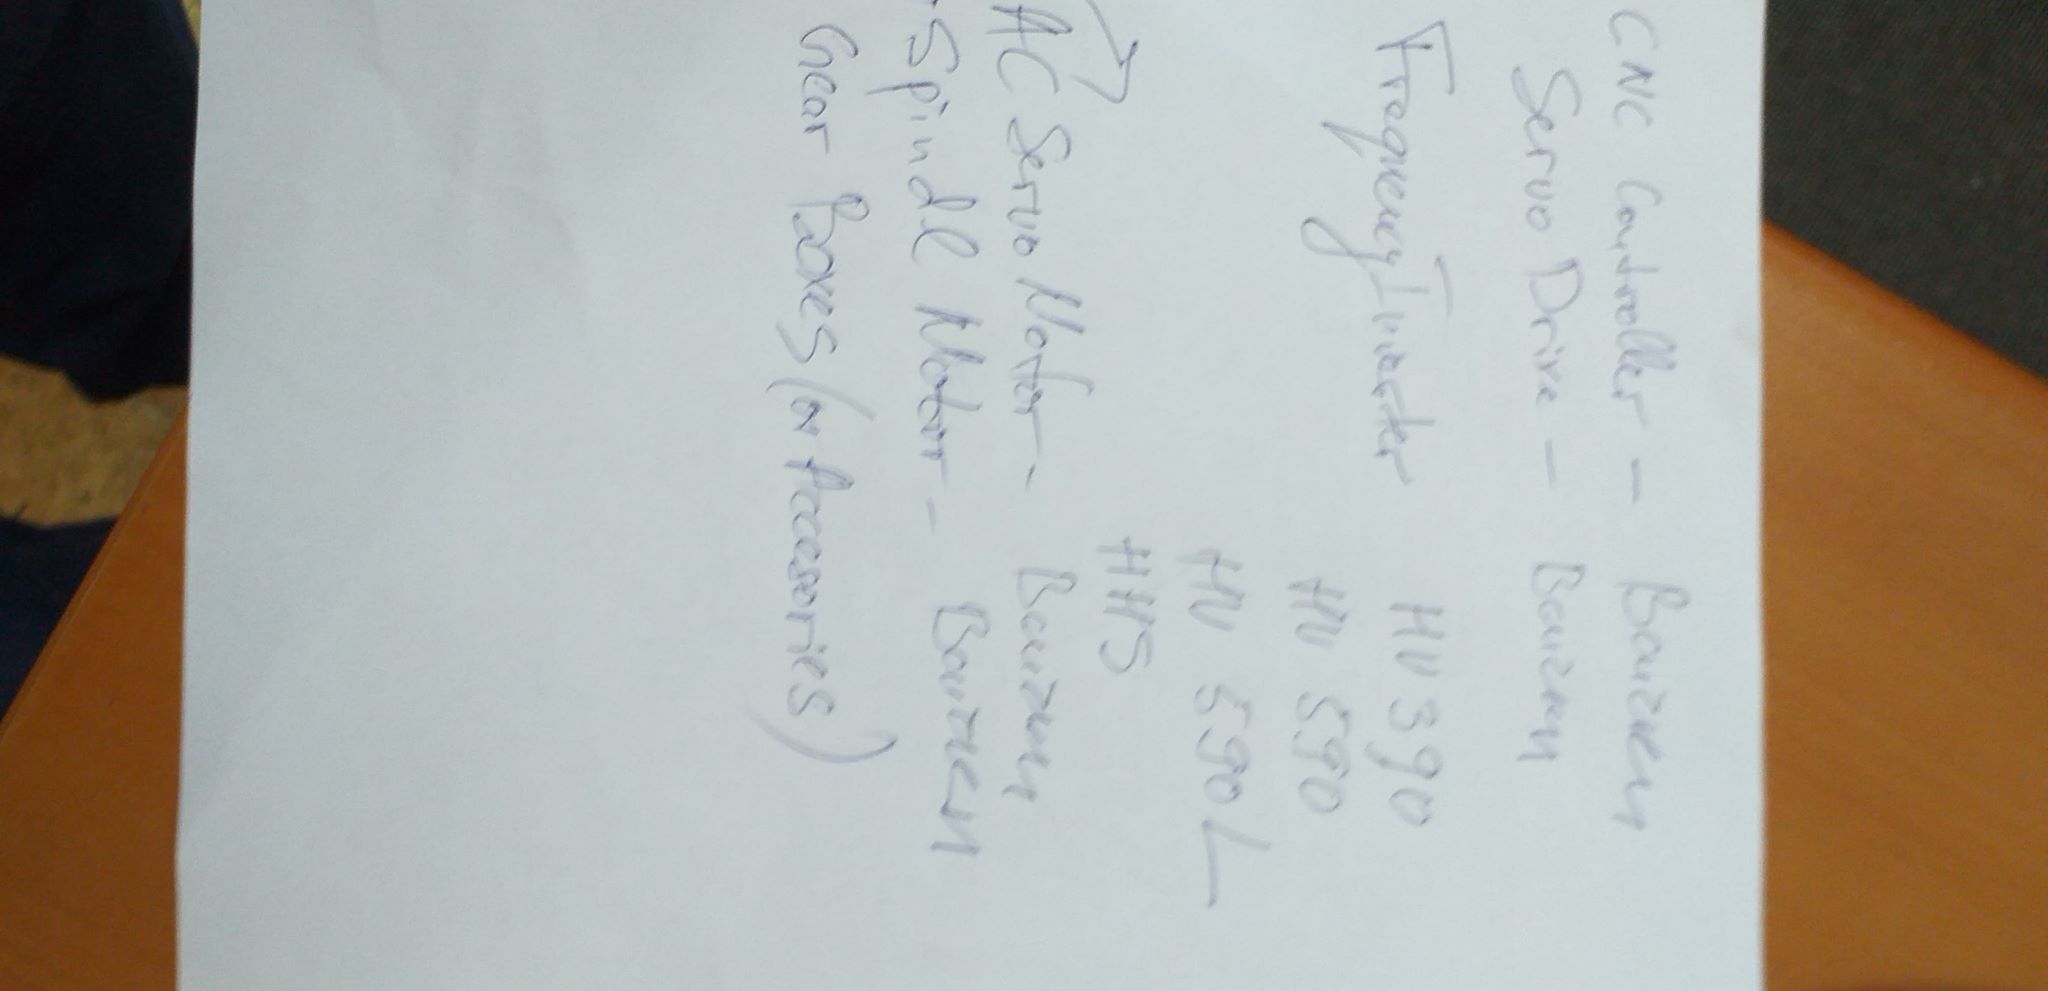 CNC Controller - Bauzem
Servo Drive - Bauzem
Frequency Inverter HV 390
HV 590
HV 590 L
HHS
AC Servo Motor - Bauzem
- Spindl Motor - Bauzem
Gear Boxes (or Accesories)